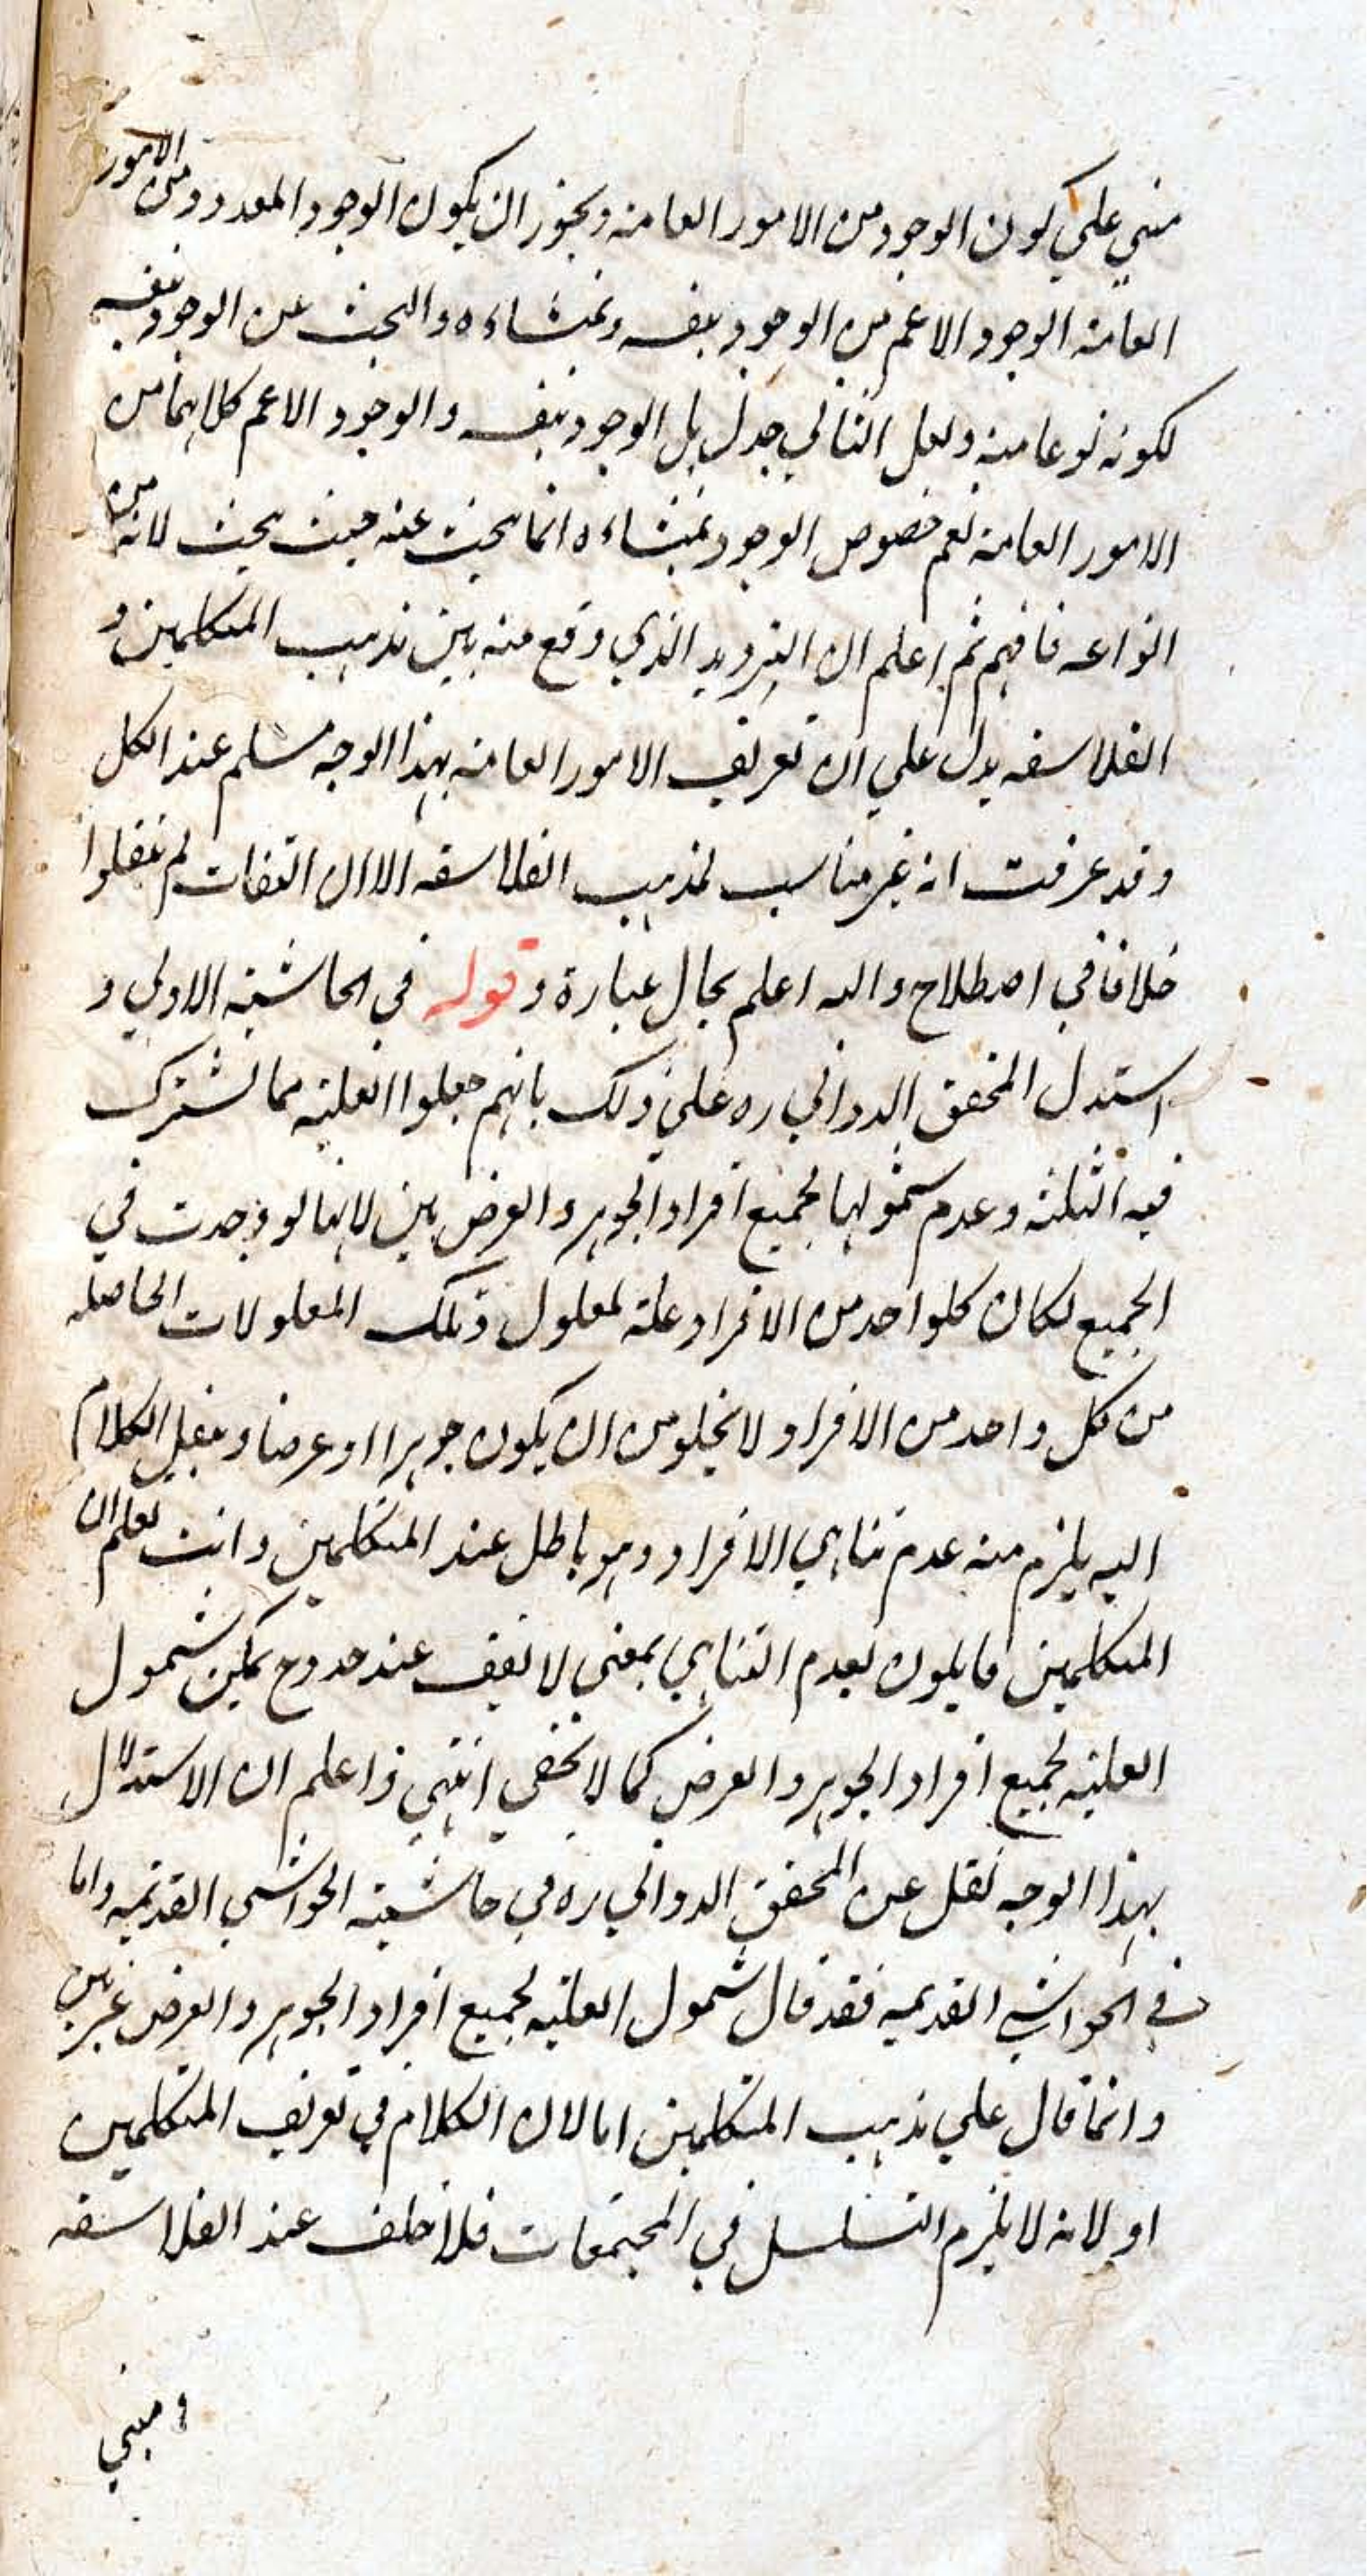 مبني علي كون الوجود من الامور العامة ويجوز ان يكون الوجود المعدود من الامور
العامة الوجود الاعم من الوجود بنفسه وبمنشاءه والبحث عن الوجود بنفسه
لكونه نوعا منه ولعل التالي جدل بل الوجود بنفسه والوجود الاعم كلاهما من
الامور العامة نعم خصوص الوجود بمنشاءه انما يبحث عنه حيث يبحث لانه من
انواعه فافهم ثم اعلم ان الترديد الذي وقع منه بين مذهب المتكلمين و
الفلاسفه يدل علي ان تعريف الامور العامة بهذا الوجه مسلم عند الكل
وقد عرفت انه غير مناسب لمذهب الفلاسفه الا ان الثقات لم ينقلوا
خلافا في اصطلاح والله اعلم بحال عبارة وقوله في الحاشية الاولي و
استدل المحقق الدواني ره علي ذلك بانهم جعلوا العلية مما يشترك
فيه الثلثة وعدم شمولها لجميع افراد الجوهر والعرض بين لانها لو وجدت في
الجميع لكان كلواحد من الافراد علة لمعلول وتلك المعلولات الحاصله
من كل واحد من الافراد لا يخلو من ان يكون جوهرا او عرضا وينقل الكلام
اليه يلزم منه عدم تناهي الافراد وهو باطل عند المتكلمين وانت تعلم ان
المتكلمين قايلون بعدم التناهي بمعني لا تقف عند حد وح يمكن شمول
العلية لجميع افراد الجوهر والعرض كما لا يخفي انتهي واعلم ان الاستدلال
بهذا الوجه نقل عن المحقق الدواني ره في حاشية الحواشي القديمه واما
في الحواشي القديمه فقد قال شمول العلية لجميع افراد الجوهر والعرض غير بين
وانما قال علي مذهب المتكلمين اما لان الكلام في تعريف المتكلمين
او لانه لا يلزم التسلسل في المجتمعات فلا خلف عند الفلاسفه
ومبني